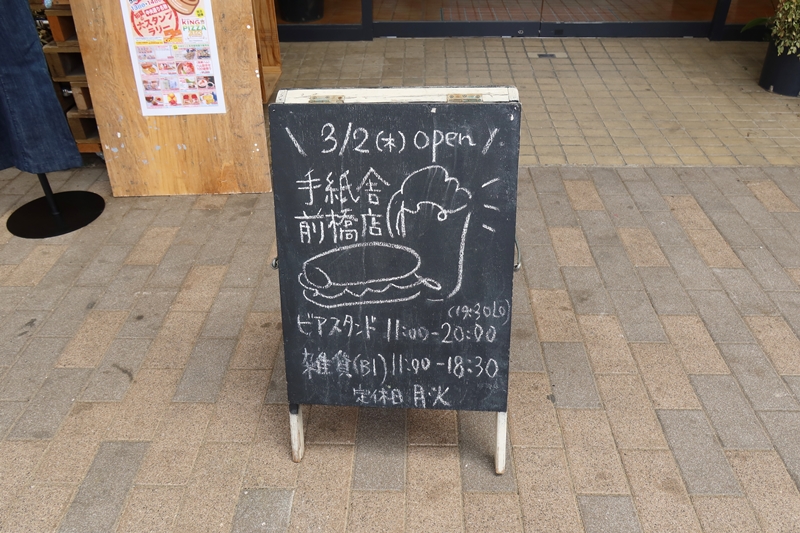 スタンプ
ラリー
KING's
PIZZA
\ 3/2(木) open /
手紙舎
前橋店
(19:30LO)
ビアスタンド 11:00-20:00
雑貨(B1) 11:00-18:30
定休日 月・火